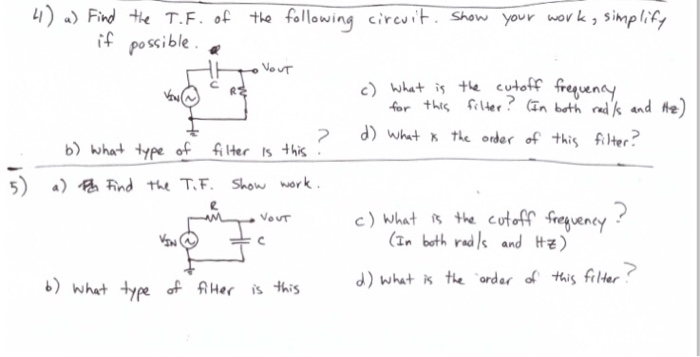 4) a) Find the T.F. of the following circuit. Show your work, simplify
if possible.
VOUT
C
R
VIN
c) What is the cutoff frequency
for this filter? (In both rad/s and Hz)
b) What type of filter is this?
d) What is the order of this filter?
5) a) Find the T.F. Show work.
R
VOUT
VIN
C
c) What is the cutoff frequency?
(In both rad/s and Hz)
b) What type of filter is this
d) What is the order of this filter?